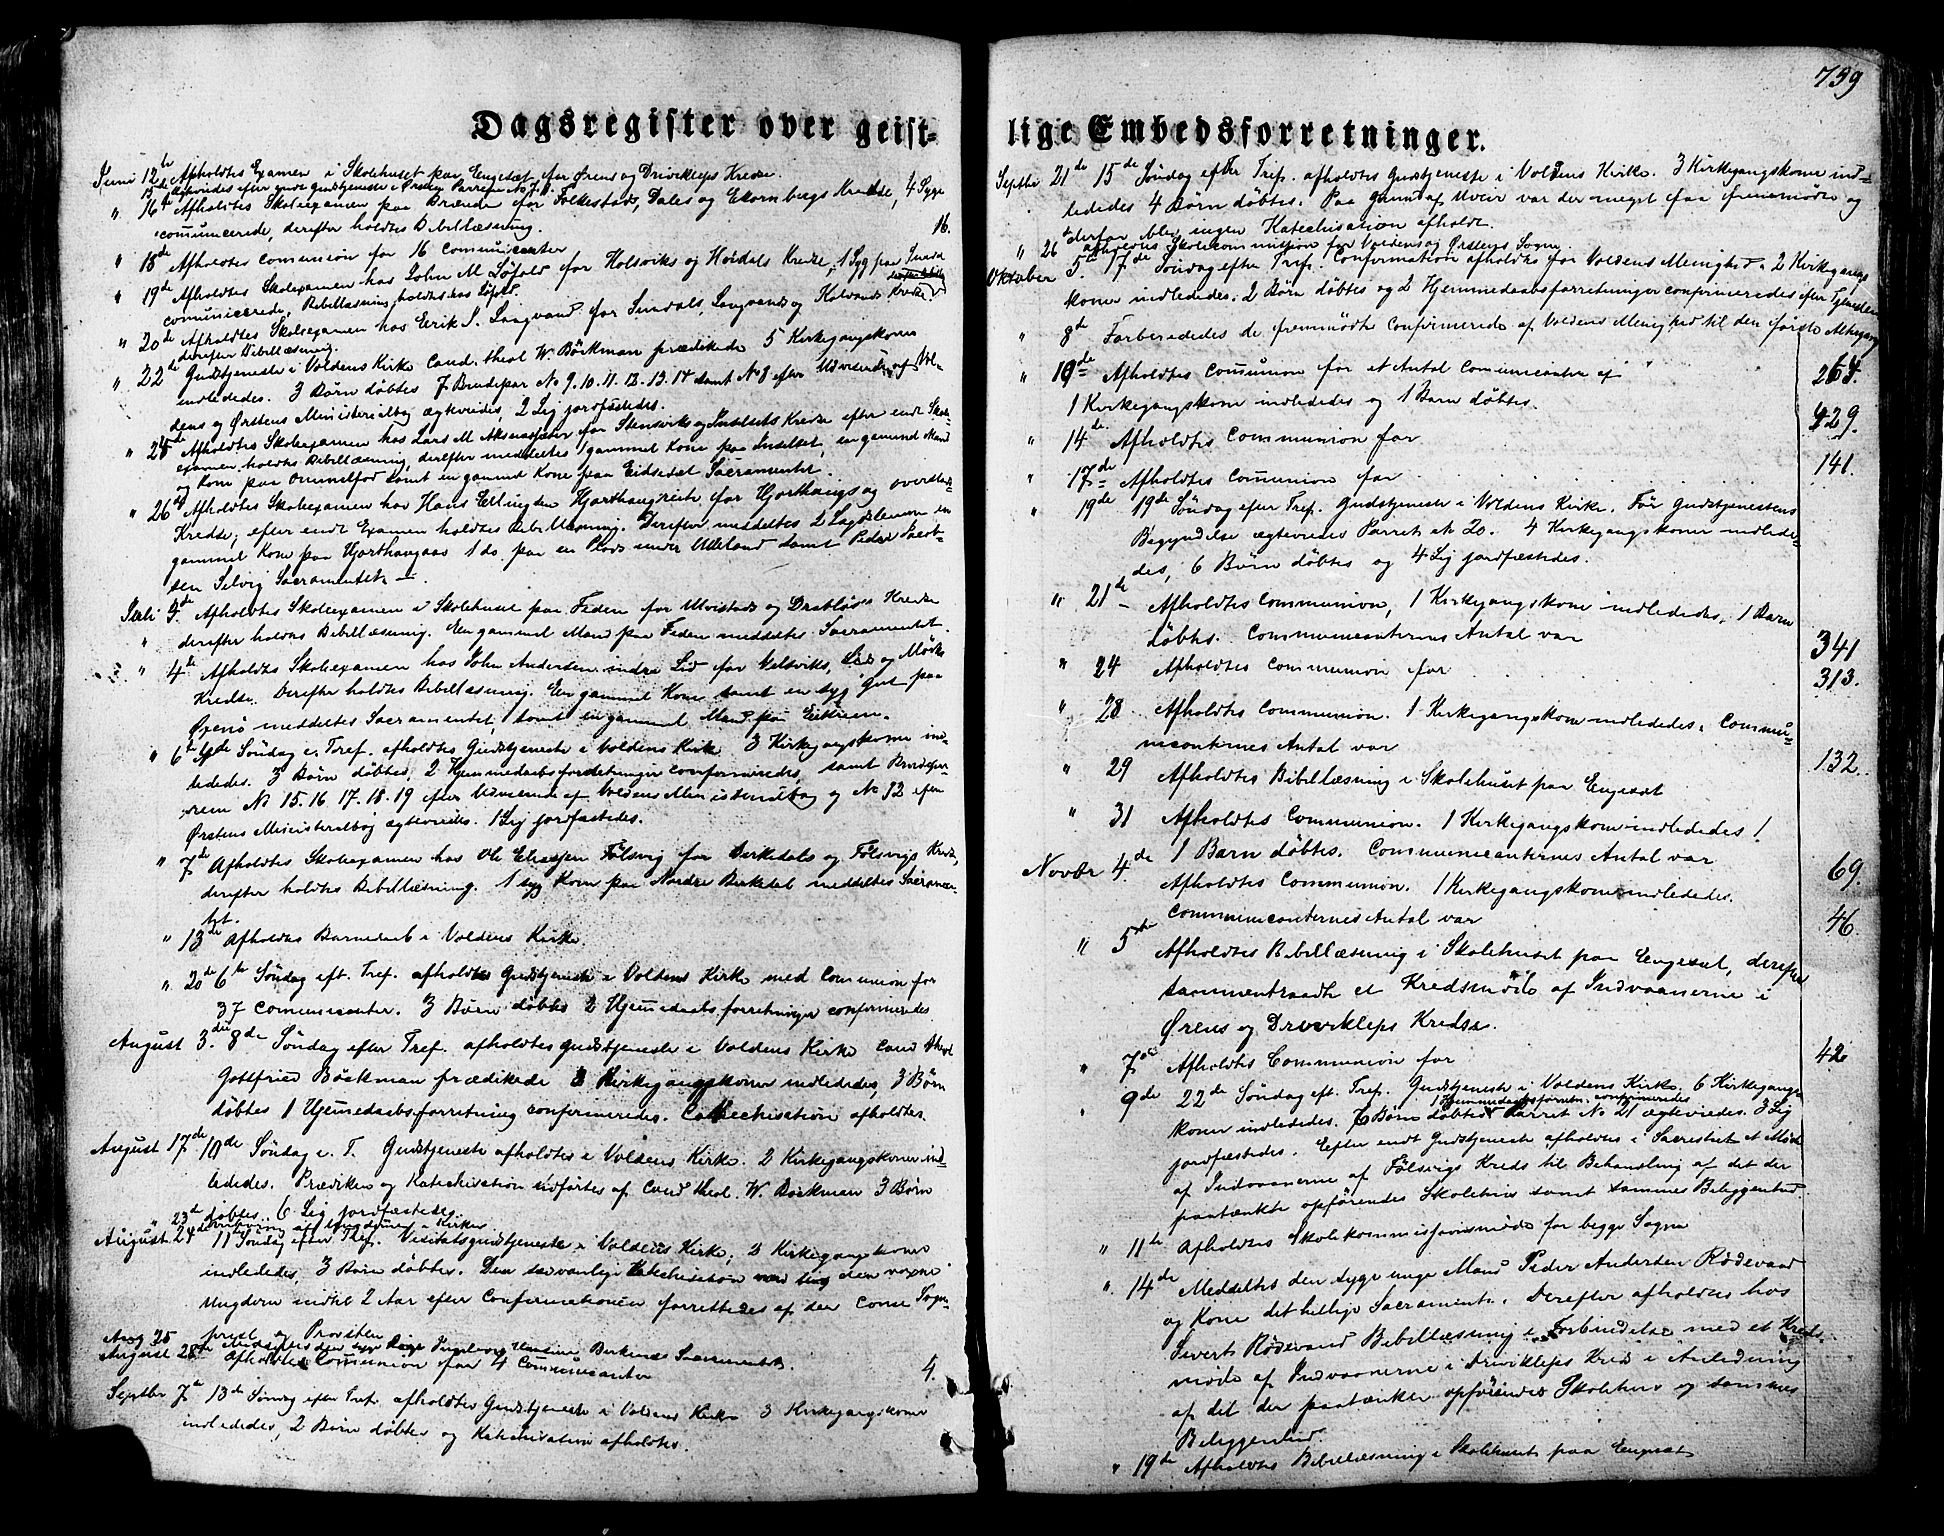 739
Dagsregister over geist-
lige Embedsforretninger.
Juni 12te Afholdtes Examen i Skolehuset paa Engesæt for Ørens og Drivekleps Kredse.
" 16de Afholdtes Skoleexamen paa Brænde for Folkestads, Dales og Ekornbergs Kredse, 4 Syge
comunicerede, derefter holdtes Bibellæsning.
" 18de Afholdtes Communion for 16 Communicanter 16.
" 19de Afholdtes Skoleexamen hos John M. Löfold for Holsviks og Heidals Kredse, 1 Syg paa
comunicerede, Bibellæsning holdtes hos Löfold.
" 20de Afholdtes Skoleexamen hos Eerik S. Laagvand for Sundals, Laagvands og Kalvands Kredse
derefter Bibellæsning.
" 22de Gudstjeneste i Voldens Kirke Cand. theol. W. Böckman prædikede 5 Kirkegangskoner
indlededes. 3 Børn döbtes 7 Brudepar No 9. 10. 11. 12. 13. 14 samt No 8 efter Udvisende af Vol-
dens og Ørstens Ministerialbog ægteviedes, 2 Lig jordfæstedes.
" 25de Afholdtes Skoleexamen hos Lars M. for Stensviks og Kredse efter endt Skole-
examen holdtes Bibellæsning, derefter meddeltes 1 gammel Kone paa en gammel Mand
og Kone paa samt en gammel Kone paa Eidsetet Sacramentet.
" 26de Afholdtes Skoleexamen hos Hans Ellingsen for Hjorthaugs og
Kredse; efter endt Examen holdtes Bibellæsning. Derefter meddeltes 2 en
gammel Kone paa 1 do. paa en Plads under samt Peder
sen Selvig Sacramentet.
Juli 3de Afholdtes Skoleexamen i Skolehuset paa Fieden for Ulvestads og Drabløs Kredse
derefter holdtes Bibellæsning. En gammel Mand paa Fieden meddeltes Sacramentet.
" 4de Afholdtes Skoleexamen hos John Andersen indre Lid for Velsviks, Lids og Mörks
Kredse. Derefter holdtes Bibellæsning. En gammel Kone samt en syg Gut paa
meddeltes Sacramentet, samt en gammel Mand paa Eikrem.
" 6te 4de Søndag e. Tref. afholdtes Gudstjeneste i Voldens Kirke 3 Kirkegangskone ind-
lededes. 3 Börn döbtes, 2 Hjemmedaabsforretninger confirmeredes, samt Brudepar-
rene No 15. 16. 17. 18. 19 efter Udvisende af Voldens Ministerialbog og No 12 efter
Ørstens Ministerialbog ægteviedes. 1 Lig jordfæstedes.
" 7de Afholdtes Skoleexamen hos Ole Eliasjen Fölsvig for Birkedals og Fölsvigs Kredse,
derefter holdtes Bibellæsning. 1 syg Kone paa Nordre Birkedal meddeltes Sacramen-
tet.
" 13de Afholdtes Barnedaab i Voldens Kirke
" 20de 6te Söndag eft. Tref. afholdtes Gudstjeneste i Voldens Kirke med Communion for
37 Communicanter. 3 Börn döbtes 2 Hjemmedaabsforretninger confirmeredes
August 3die 8de Søndag efter Tref. afholdtes Gudstjeneste i Voldens Kirke Cand
Gottfried Böckman prædikede 3 Kirkegangskoner indlededes, 3 Börn
döbtes 1 Hjemmedaabsforretning confirmeredes. Catechisation afholdtes.
August 17de 10de Søndag e. T. Gudstjeneste afholdtes i Voldens Kirke. 2 Kirkegangskoner ind-
lededes. Prædiken og Katechisation udførtes af Cand theol. W. Böckman 3 Börn
döbtes. 6 Lig jordfæstedes.
" 23de af Ungdommen i Kirken
August 24de 11te Søndag efter Tref. Visitatsgudstjeneste i Voldens Kirke; 3 Kirkegangskoner
indlededes, 3 Börn döbtes. Den sedvanlige Katechisation med den voxne
Ungdom indtil 2 Aar efter Confirmationen forrettedes af den Sogne-
prest og Provsten
Aug. 25 Meddeltes den syge Pige Ingeborg Birkenes Sacramentet.
August 28de Afholdtes Communion for 4 Communicanter 4.
Septbr 7de 13de Søndag efter Tref. afholdtes Gudstjeneste i Voldens Kirke 3 Kirkegangskoner
indlededes, 2 Börn döbtes og Katechisation afholdtes.
Septbr 21de 15de Søndag efter Tref. afholdtes Gudstjeneste i Voldens Kirke. 3 Kirkegangskoner ind-
lededes 4 Börn døbtes. Paa Grund af Uveir var der meget faa fremmødte og
derfor blev ingen Katechisation afholdt.
" 26de afholdtes Skolecommission for Voldens og Ørstens Sogne
Oktober 5te 17de Søndag efter Tref. Confirmation afholdtes for Voldens Menighed 2 Kirkegangs-
koner indlededes. 2 Börn døbtes og 2 Hjemmedaabsforretninger confirmeredes efter Tjenesten
" 8de Forberededes de fremmödte Confirmerede af Voldens Menighed til den første Altergang
" 10de Afholdtes Communion for et Antal Communicanter af 264.
1 Kirkegangskone indlededes og 1 Barn døbtes.
" 14de Afholdtes Communion for 429.
" 17de Afholdtes Communion for 141.
" 19de 19de Søndag efter Tref. Gudstjeneste i Voldens Kirke. Før Gudstjenestens
Begyndelse ægteviedes Parret No 20. 4 Kirkegangskoner indlede-
des, 6 Börn döbtes og 4 Lig jordfæstedes.
" 21de Afholdtes Communion, 1 Kirkegangskone indlededes, 1 Barn
døbtes. Communicanternes Antal var 341
" 24 Afholdtes Communion for 313.
" 28 Afholdtes Communion. 1 Kirkegangskone indlededes. Commu-
nicanternes Antal var 132.
" 29 Afholdtes Bibellæsning i Skolehuset paa Engesæt
" 31 Afholdtes Communion. 1 Kirkegangskone indlededes 1
1 Barn døbtes. Communicanternes Antal var 69.
Novbr 4de Afholdtes Communion. 1 Kirkegangskone indlededes.
Communicanternes Antal var 46
" 5te Afholdtes Bibellæsning i Skolehuset paa Engeset, derefter
sammentraadte et Kredsmöde af Indvaanerne i
Ørens og Drivekleps Kredse.
" 7de Afholdtes Communion for 42
" 9de 22de Søndag eft. Tref. Gudstjeneste i Voldens Kirke. 6 Kirkegangs-
1 Hjemmedaabsforretn. confirmeredes
koner indlededes. 6 Børn döbtes Parret No 21 ægteviedes. 3 Lig
jordfæstedes. Efter endt Gudstjeneste afholdtes i Sacrestiet et Möde
af Indvaanerne af Fölsvigs Kreds til Behandling af det der
paatænkte opførendes Skolehus samt sammes Beliggenhed.
" 11te Afholdtes Skolekommissionsmøde for begge Sogne
" 14de Meddeltes den syge unge Mand Peder Andersen Rödevand
og Kone det hellige Sacramente. Derefter afholdtes hos
Sivert Rødevand Bibellæsning i Forbindelse med et Kreds-
møde af Indvaanerne i Drivekleps Kreds i Anledning
af det der paatænkte opførendes Skolehus og sammes
Beliggenhed.
" 19de Afholdtes Bibellæsning i Skolehuset paa Engesæt